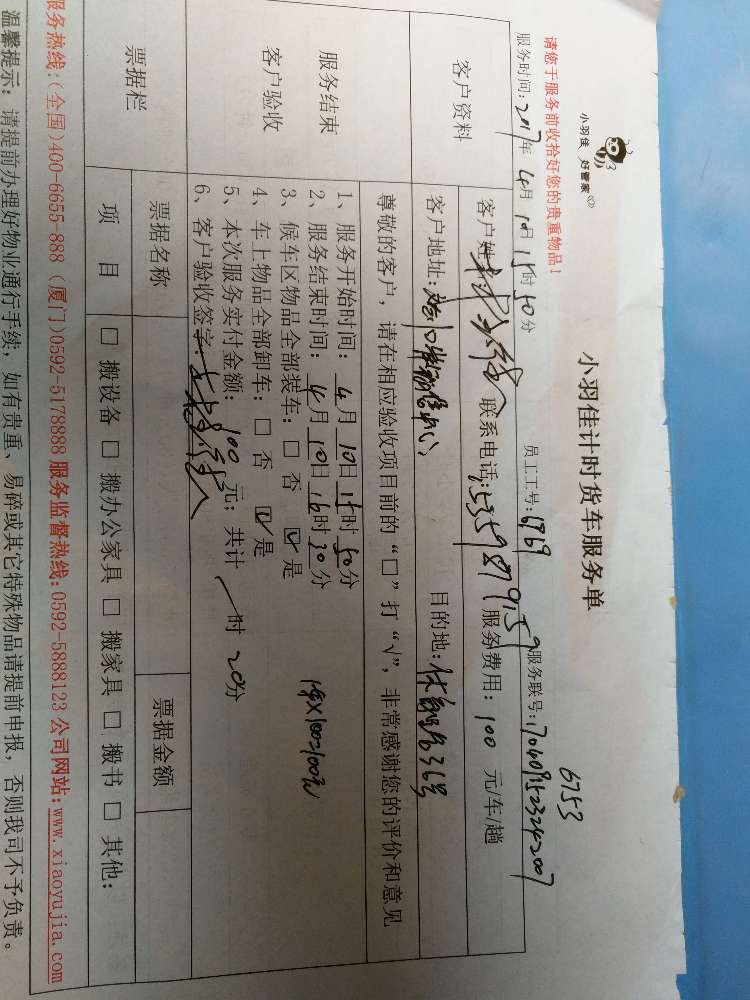 小羽佳 好管家
小羽佳计时货车服务单
6753
请您于服务前收拾好您的贵重物品！
服务时间：2017年 4月 10日 15时 50分 员工工号：6969 服务联号：
客户资料
客户姓名： 联系电话：15359879159 服务费用：100 元/车/趟
客户地址： 目的地：
服务结束
客户验收
尊敬的客户，请在相应验收项目前的“□”打“√”，非常感谢您的评价和意见
1、服务开始时间：4月 10日 15时 50分
2、服务结束时间：4月 10日 16时 10分
3、候车区物品全部装车：□ 否 ☑ 是
4、车上物品全部卸车：□ 否 ☑ 是
5、本次服务实付金额：100 元；共计 时 20分
1车X100=100元
6、客户验收签字：
票据栏
票据名称 票据金额
项 目 □ 搬设备 □ 搬办公家具 □ 搬家具 □ 搬书 □ 其他：
服务热线：(全国)400-6655-888 (厦门)0592-5178888 服务监督热线：0592-5888123 公司网站：www.xiaoyujia.com
温馨提示：请提前办理好物业通行手续，如有贵重、易碎或其它特殊物品请提前申报，否则我司不予负责。